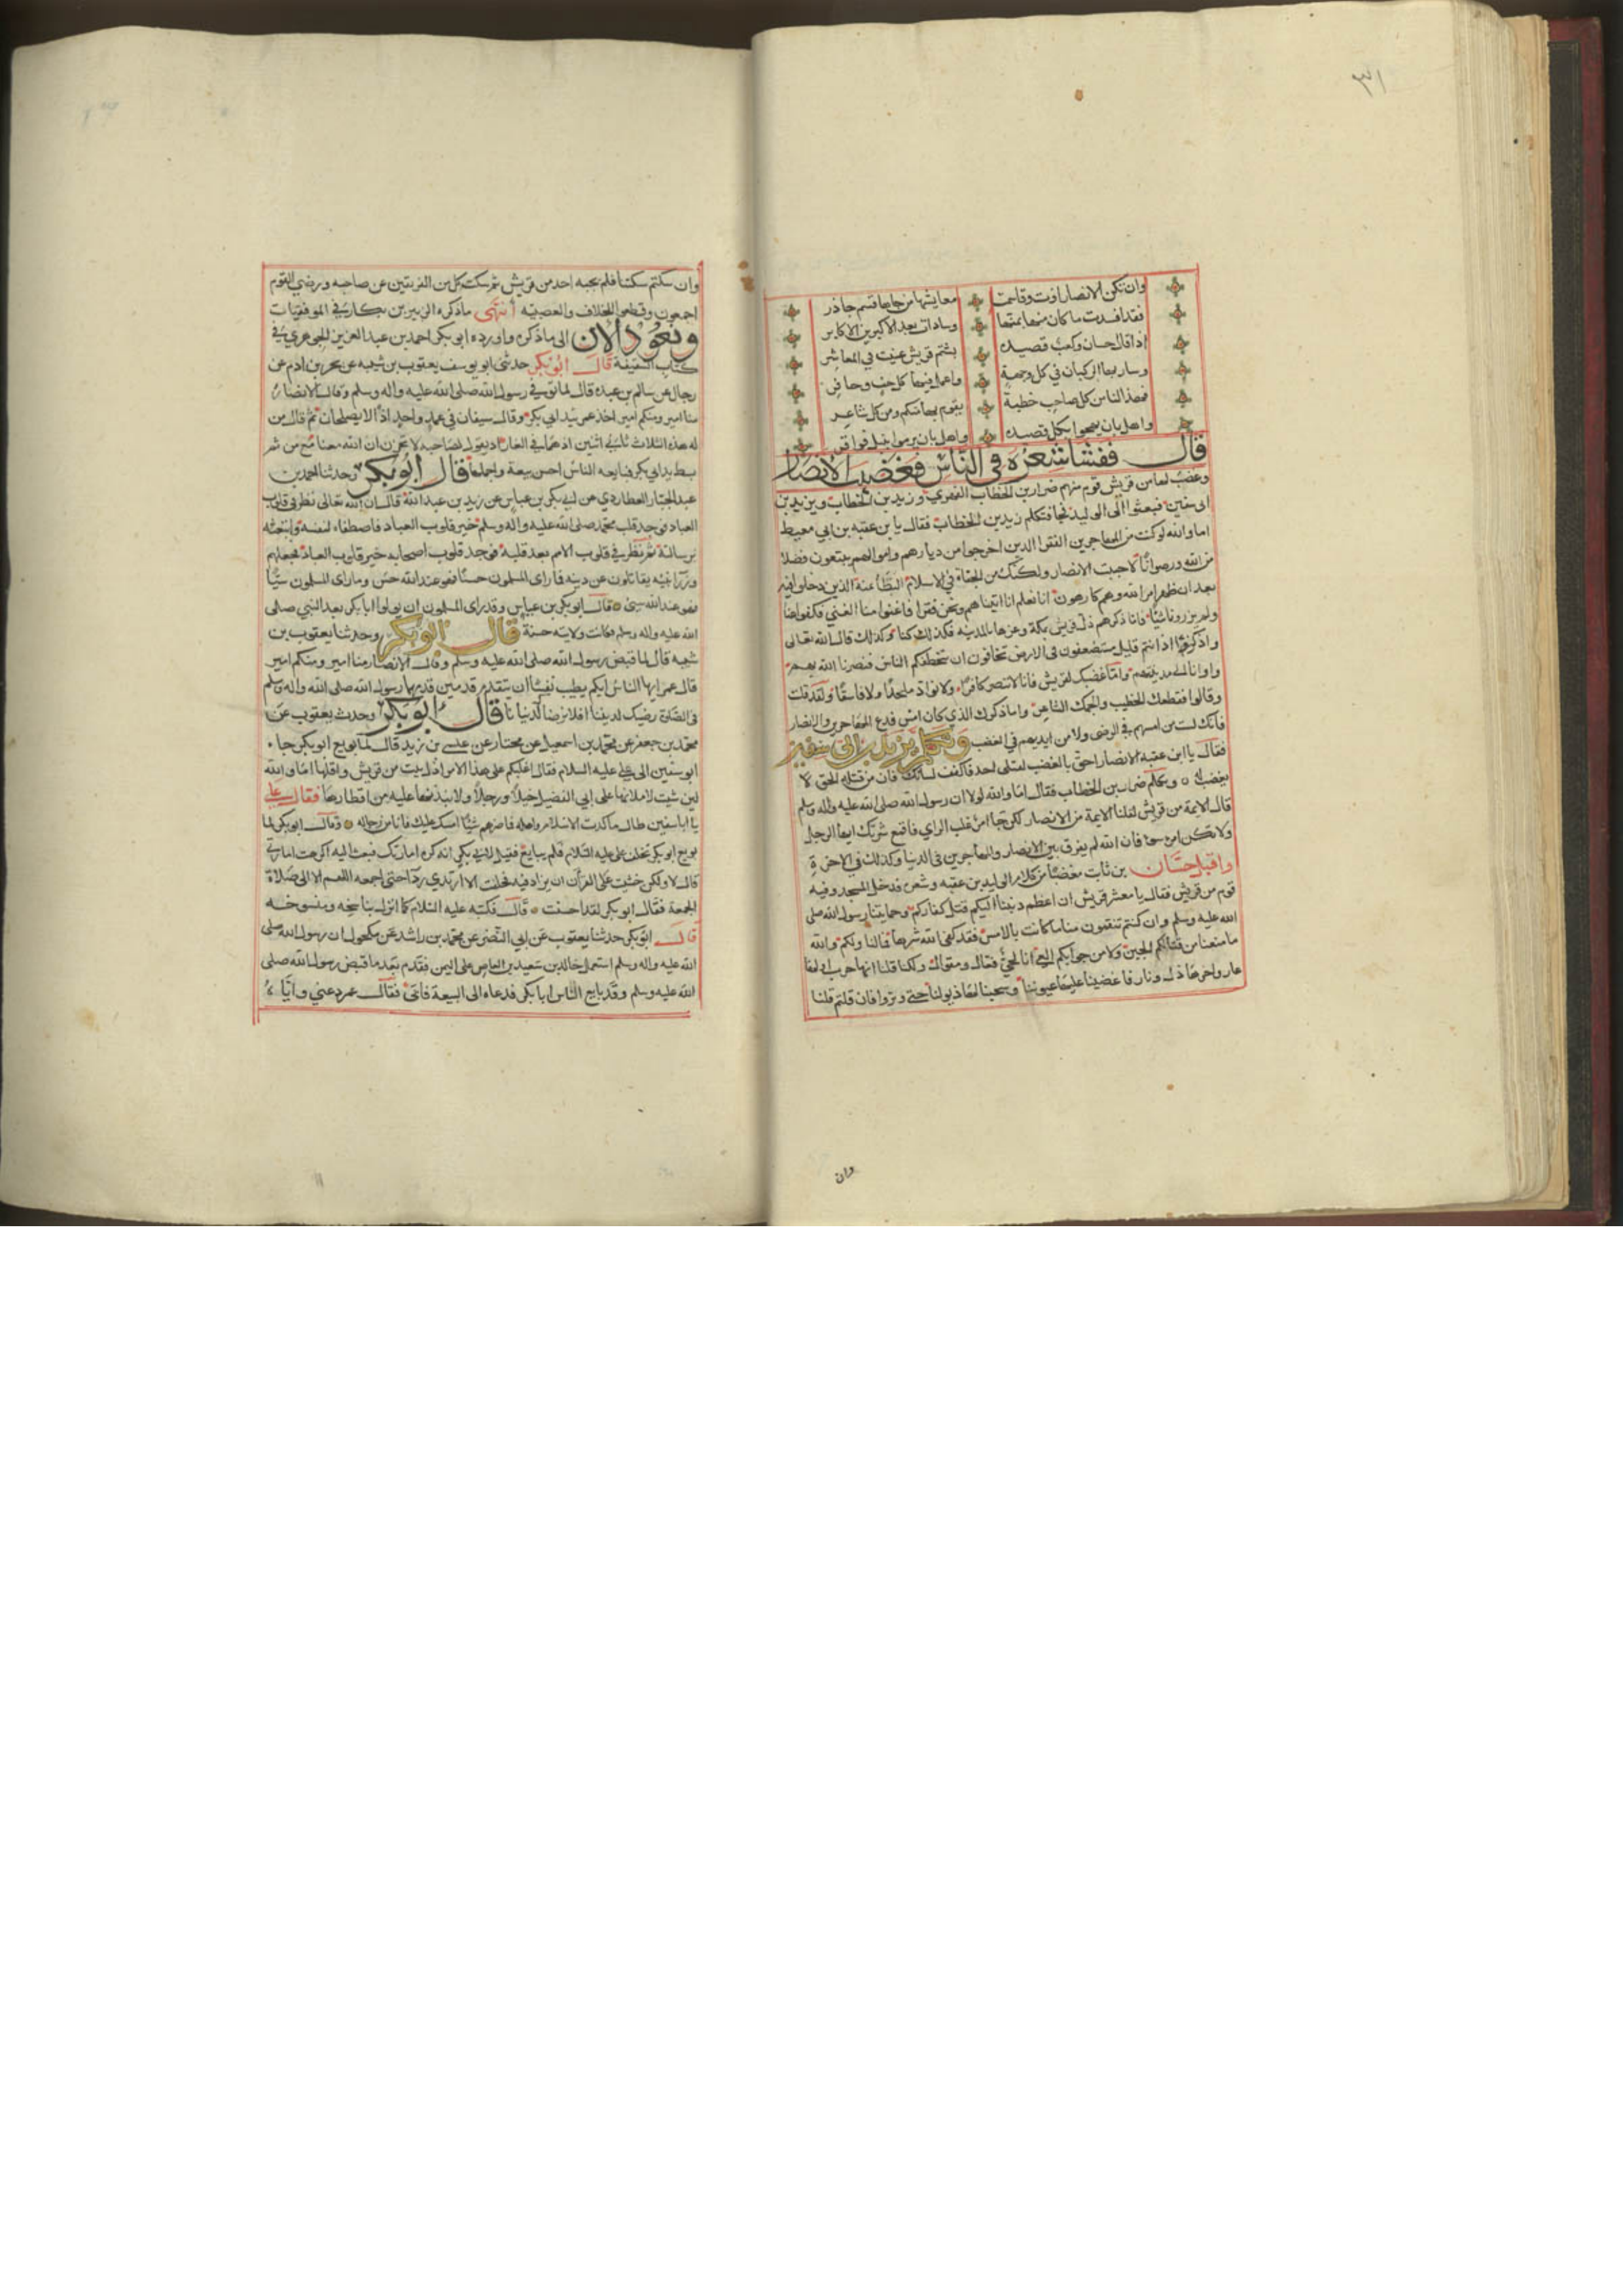 ٣١
وان تكن الانصار اوت وقاسمت معايشها من جاءها قسم جاذر
فقد افسدت ما كان منها بمنها وسادات بعد الاكبرين الاكابر
اذا قال حسان وكعب قصيدة بشتم قريش عنيت في المعاشر
وسار بها الركبان في كل وجهة واعمل فيها كل خف وحافر
فهذا لنا من كل صاحب خطبة يقوم بها منكم ومن كل شاعر
واهل بان يهجوا بكل قصيدة واهل بان يرموا بنبل فواقر
قال ففشا شعره في الناس فغضبت الانصار
وغضب لها من قريش قوم منهم ضرار بن الخطاب الفهري وزيد بن الخطاب ويزيد بن
ابي سفين فبعثوا الى الوليد فجا فتكلم زيد بن الخطاب فقال يا بن عقبه بن ابي معيط
اما والله لو كنت من المهاجرين الفقرا الذين اخرجوا من ديارهم واموالهم يبتغون فضلا
من الله ورضوانا لاحببت الانصار ولكنك من الجفاة في الاسلام البطأ عنه الذين دخلوا فيه
بعد ان ظهر امر الله وهم كارهون انا نعلم انا اتيناهم ونحن فقرا فاغنونا منا الغني فكفوا
ولم يرزونا شيئا فاما ذكرهم ذلة قريش بمكة وعزها بالمدينه فكذلك كنا وكذلك قال الله تعالى
واذكروا اذ انتم قليل مستضعفون في الارض تخافون ان يتخطفكم الناس فنصرنا الله بهم
واوانا الى مدينتهم واما غضبك لقريش فانا لا ننصر كافرا ولا نواد ملحدا ولا فاسقا ولقد قلت
وقالوا فقطعك الخطيب والجمك الشاعر واما ذكرك الذي كان امس فدع المهاجرين والانصار
فانك لست من السنتهم في الرضى ولا من ايديهم في الغضب وتكلم يزيد بن ابي سفين
فقال يا ابن عقبه الانصار احق بالغضب لقتلى احد فاكفف لسانك فان من قتله الحق لا
يغضب له وتكلم ضرار بن الخطاب فقال اما والله لولا ان رسول الله صلى الله عليه واله وسلم
قال الايمة من قريش لقلنا الايمة من الانصار لكن جا امر غلب الراي فاقمع شرتك ايها الرجل
ولا تكن امرء سوء فان الله لم يفرق بين الانصار والمهاجرين في الدنيا وكذلك في الاخرة
واقبل حسان بن ثابت مغضبا من كلام الوليد بن عقبه وشعره فدخل المسجد وفيه
قوم من قريش فقال يا معشر قريش ان اعظم ذنبنا اليكم قتل كفاركم وحمايتنا رسول الله صلى
الله عليه وسلم وان كنتم تنقمون منا ما كانت بالامس فقد كفى الله شرها فما لنا ولكم والله
ما منعنا من قتالكم الجبن ولا من جوابكم العي انا لحي فعال ومقوال ولكنا قلنا انها حرب اولها
عار واخرها ذل ونار فاغضينا عليها عيوننا وسحبنا لها ذيولنا حتى نرى وتروا فان قلتم قلنا
وان
وان سكتم سكتنا فلم يجبه احد من قريش ثم سكت كل من الفريقين عن صاحبه ورضي القوم
اجمعون وقطعوا الخلاف والعصبيه انتهى ما ذكره الزبير بن بكار في الموفقيات
ونعود الان الى ما ذكره واورده ابو بكر احمد بن عبد العزيز الجوهري في
كتاب السقيفة قال ابو بكر حدثني ابو يوسف يعقوب بن شيبه عن بحر بن ادم عن
رجاله عن سالم بن عبيده قال لما توفي رسول الله صلى الله عليه واله وسلم وقالت الانصار
منا امير ومنكم امير اخذ عمر بيد ابي بكر وقال سيفان في غمد واحد اذا لا يصلحان ثم قال من
له هذه الثلاث ثاني اثنين اذ هما في الغار اذ يقول لصاحبه لا تحزن ان الله معنا مع من ثم
بسط يد ابي بكر فبايعه الناس احسن بيعة واجملها قال ابو بكر وحدثنا احمد بن
عبد الجبار العطاردي عن ابي بكر بن عياش عن زيد بن عبد الله قال ان الله تعالى نظر في قلوب
العباد فوجد قلب محمد صلى الله عليه واله وسلم خير قلوب العباد فاصطفاه لنفسه وابتعثه
برسالته ثم نظر في قلوب الامم بعد قلبه فوجد قلوب اصحابه خير قلوب العباد فجعلهم
وزرا نبيه يقاتلون عن دينه فما راى المسلمون حسنا فهو عند الله حسن وما راى المسلمون سيئا
فهو عند الله سيئ قال ابو بكر بن عياش وقد راى المسلمون ان يولوا ابا بكر بعد النبي صلى
الله عليه واله وسلم فكانت ولايته حسنة قال ابو بكر وحدثنا يعقوب بن
شيبه قال لما قبض رسول الله صلى الله عليه وسلم وقالت الانصار منا امير ومنكم امير
قال عمر ايها الناس ايكم يطيب نفسا ان يتقدم قدمين قدمهما رسول الله صلى الله واله وسلم
في الصلاة رضيك لديننا افلا نرضاك لدنيانا قال ابو بكر وحدث يعقوب عن
محمد بن جعفر عن محمد بن اسمعيل عن مختار عن عيسى بن زيد قال لما بويع ابو بكر جا
ابو سفين الى علي عليه السلام فقال اغلبكم على هذا الامر اذل بيت من قريش واقلها اما والله
لين شيت لاملانها على ابي الفصيل خيلا ورجلا ولاسدنها عليه من اقطارها فقال علي
يا ابا سفين طال ما كدت الاسلام واهله فما ضرهم شيئا امسك عليك فانا من رجاله وقال ابو بكر لما
بويع ابو بكر تخلف علي عليه السلام فلم يبايع فقيل لابي بكر انه كره امارتك فبعث اليه اكرهت امارتي
قال لا ولكن خشيت على القران ان يزاد فيه فحلفت الا ارتدي ردا حتى اجمعه اللهم الا الى صلاة
الجمعة فقال ابو بكر لقد احسنت قال فكتبه عليه السلام كما انزل بناسخه ومنسوخه
قال ابو بكر حدثنا يعقوب عن ابي النضر عن محمد بن راشد عن مكحول ان رسول الله صلى
الله عليه واله وسلم استعمل خالد بن سعيد بن العاص على اليمن فقدم بعد ما قبض رسول الله صلى
الله عليه وسلم وقد بايع الناس ابا بكر فدعاه الى البيعة فابى فقال عمر دعني واياه